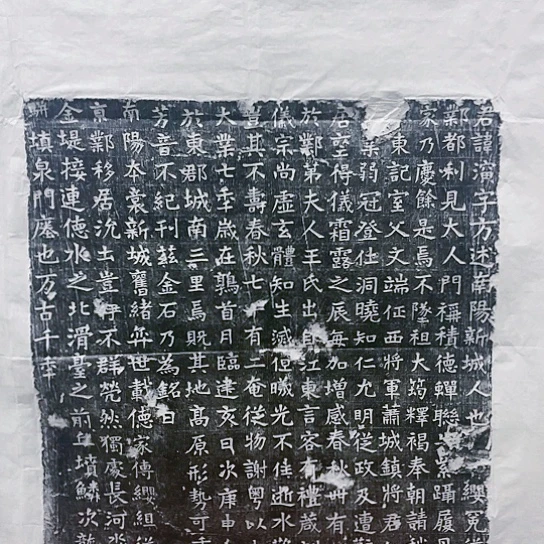 君諱滿字方述南陽新城人也纓冕
鄴都利見大人門稱積德蟬聯系躡履
家乃慶餘是焉不墜祖大筠釋褐奉朝請
東記室父文端征西將軍蕭城鎮將君
弱冠登仕洞曉知仁允明從政及遭
居堊得儀霜露之辰每加增感春秋卌有
於鄴第夫人王氏出自江東言容有禮
儀宗尚虛玄體知生滅但曦光不住逝水
豈其不壽春秋七十有二奄從物謝粵以
大業七年歲在鶉首月臨建亥日次庚申
於東郡城南三里焉既其地高原形勢可
芳音不紀刊茲金石乃為銘曰
南陽本袁新城舊緒弈世載德家傳纓組
鄴移居沇出豈伊不群煢然獨處長河
金堤接連德水之北滑臺之前丘墳鱗次
填泉門處也万古千年